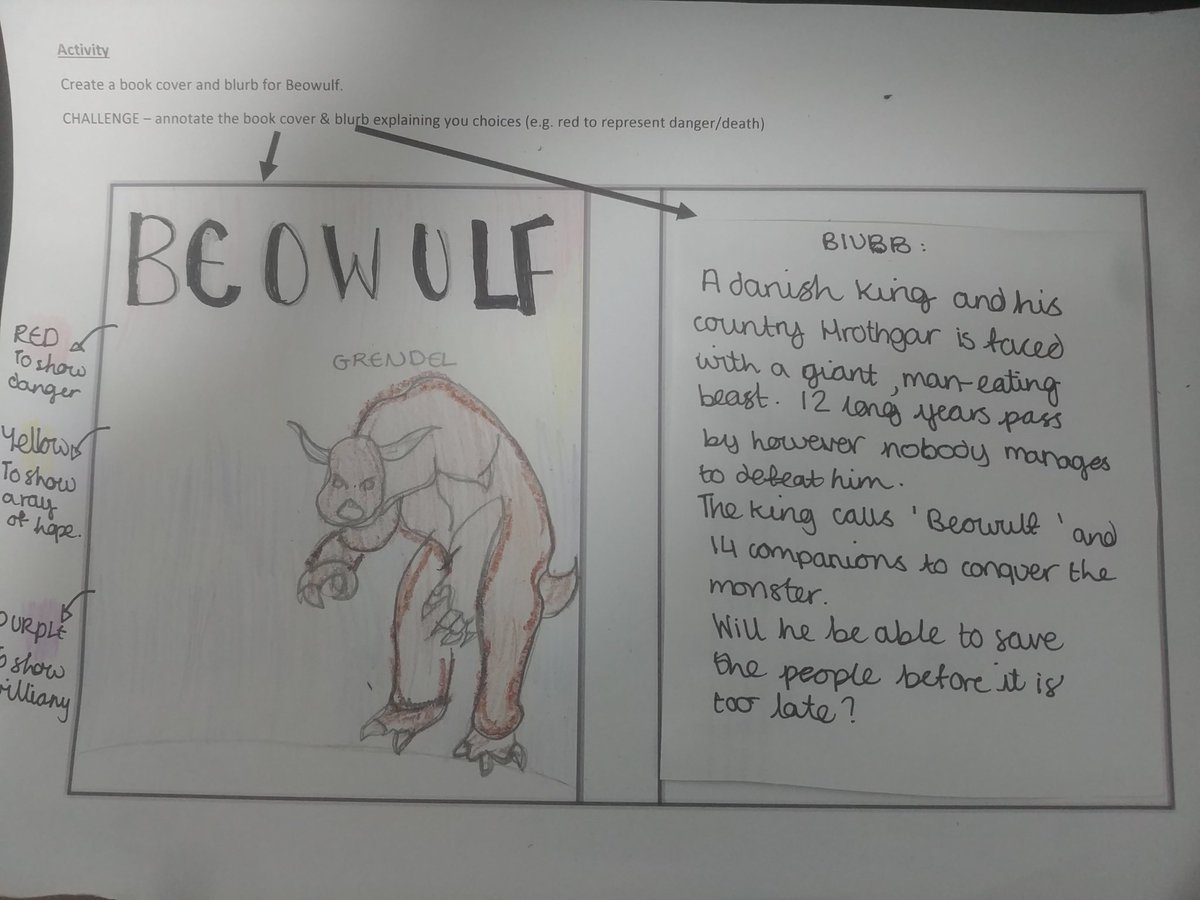 Activity
Create a book cover and blurb for Beowulf.
CHALLENGE – annotate the book cover & blurb explaining you choices (e.g. red to represent danger/death)
BEOWULF
GRENDEL
RED
To show
danger
Yellow
To show
a ray
of hope.
PURPLE
To show
villiany
BlUBB:
A danish king and his
country Hrothgar is faced
with a giant, man-eating
beast. 12 long years pass
by however nobody manages
to defeat him.
The king calls 'Beowulf' and
14 companions to conquer the
monster.
Will he be able to save
the people before it is
too late?